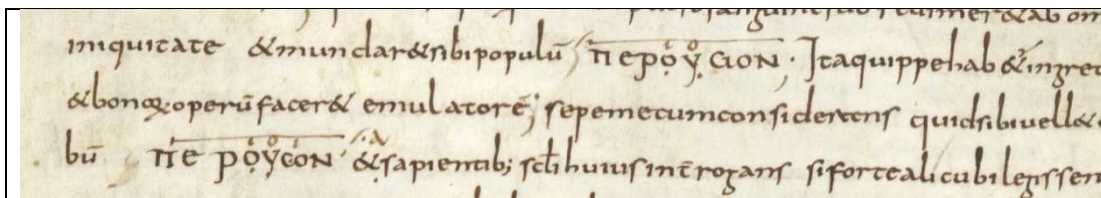 iniquitate & mundar& sibi populū περọύσιον · Ita quippe hab&
& bonoꝝ operū facer& emulatorē; sepe mecum considerans quid sibi vell&
bū περọύσιον & sapientib; scłi huius int̄rogans si forte alicubi legissen